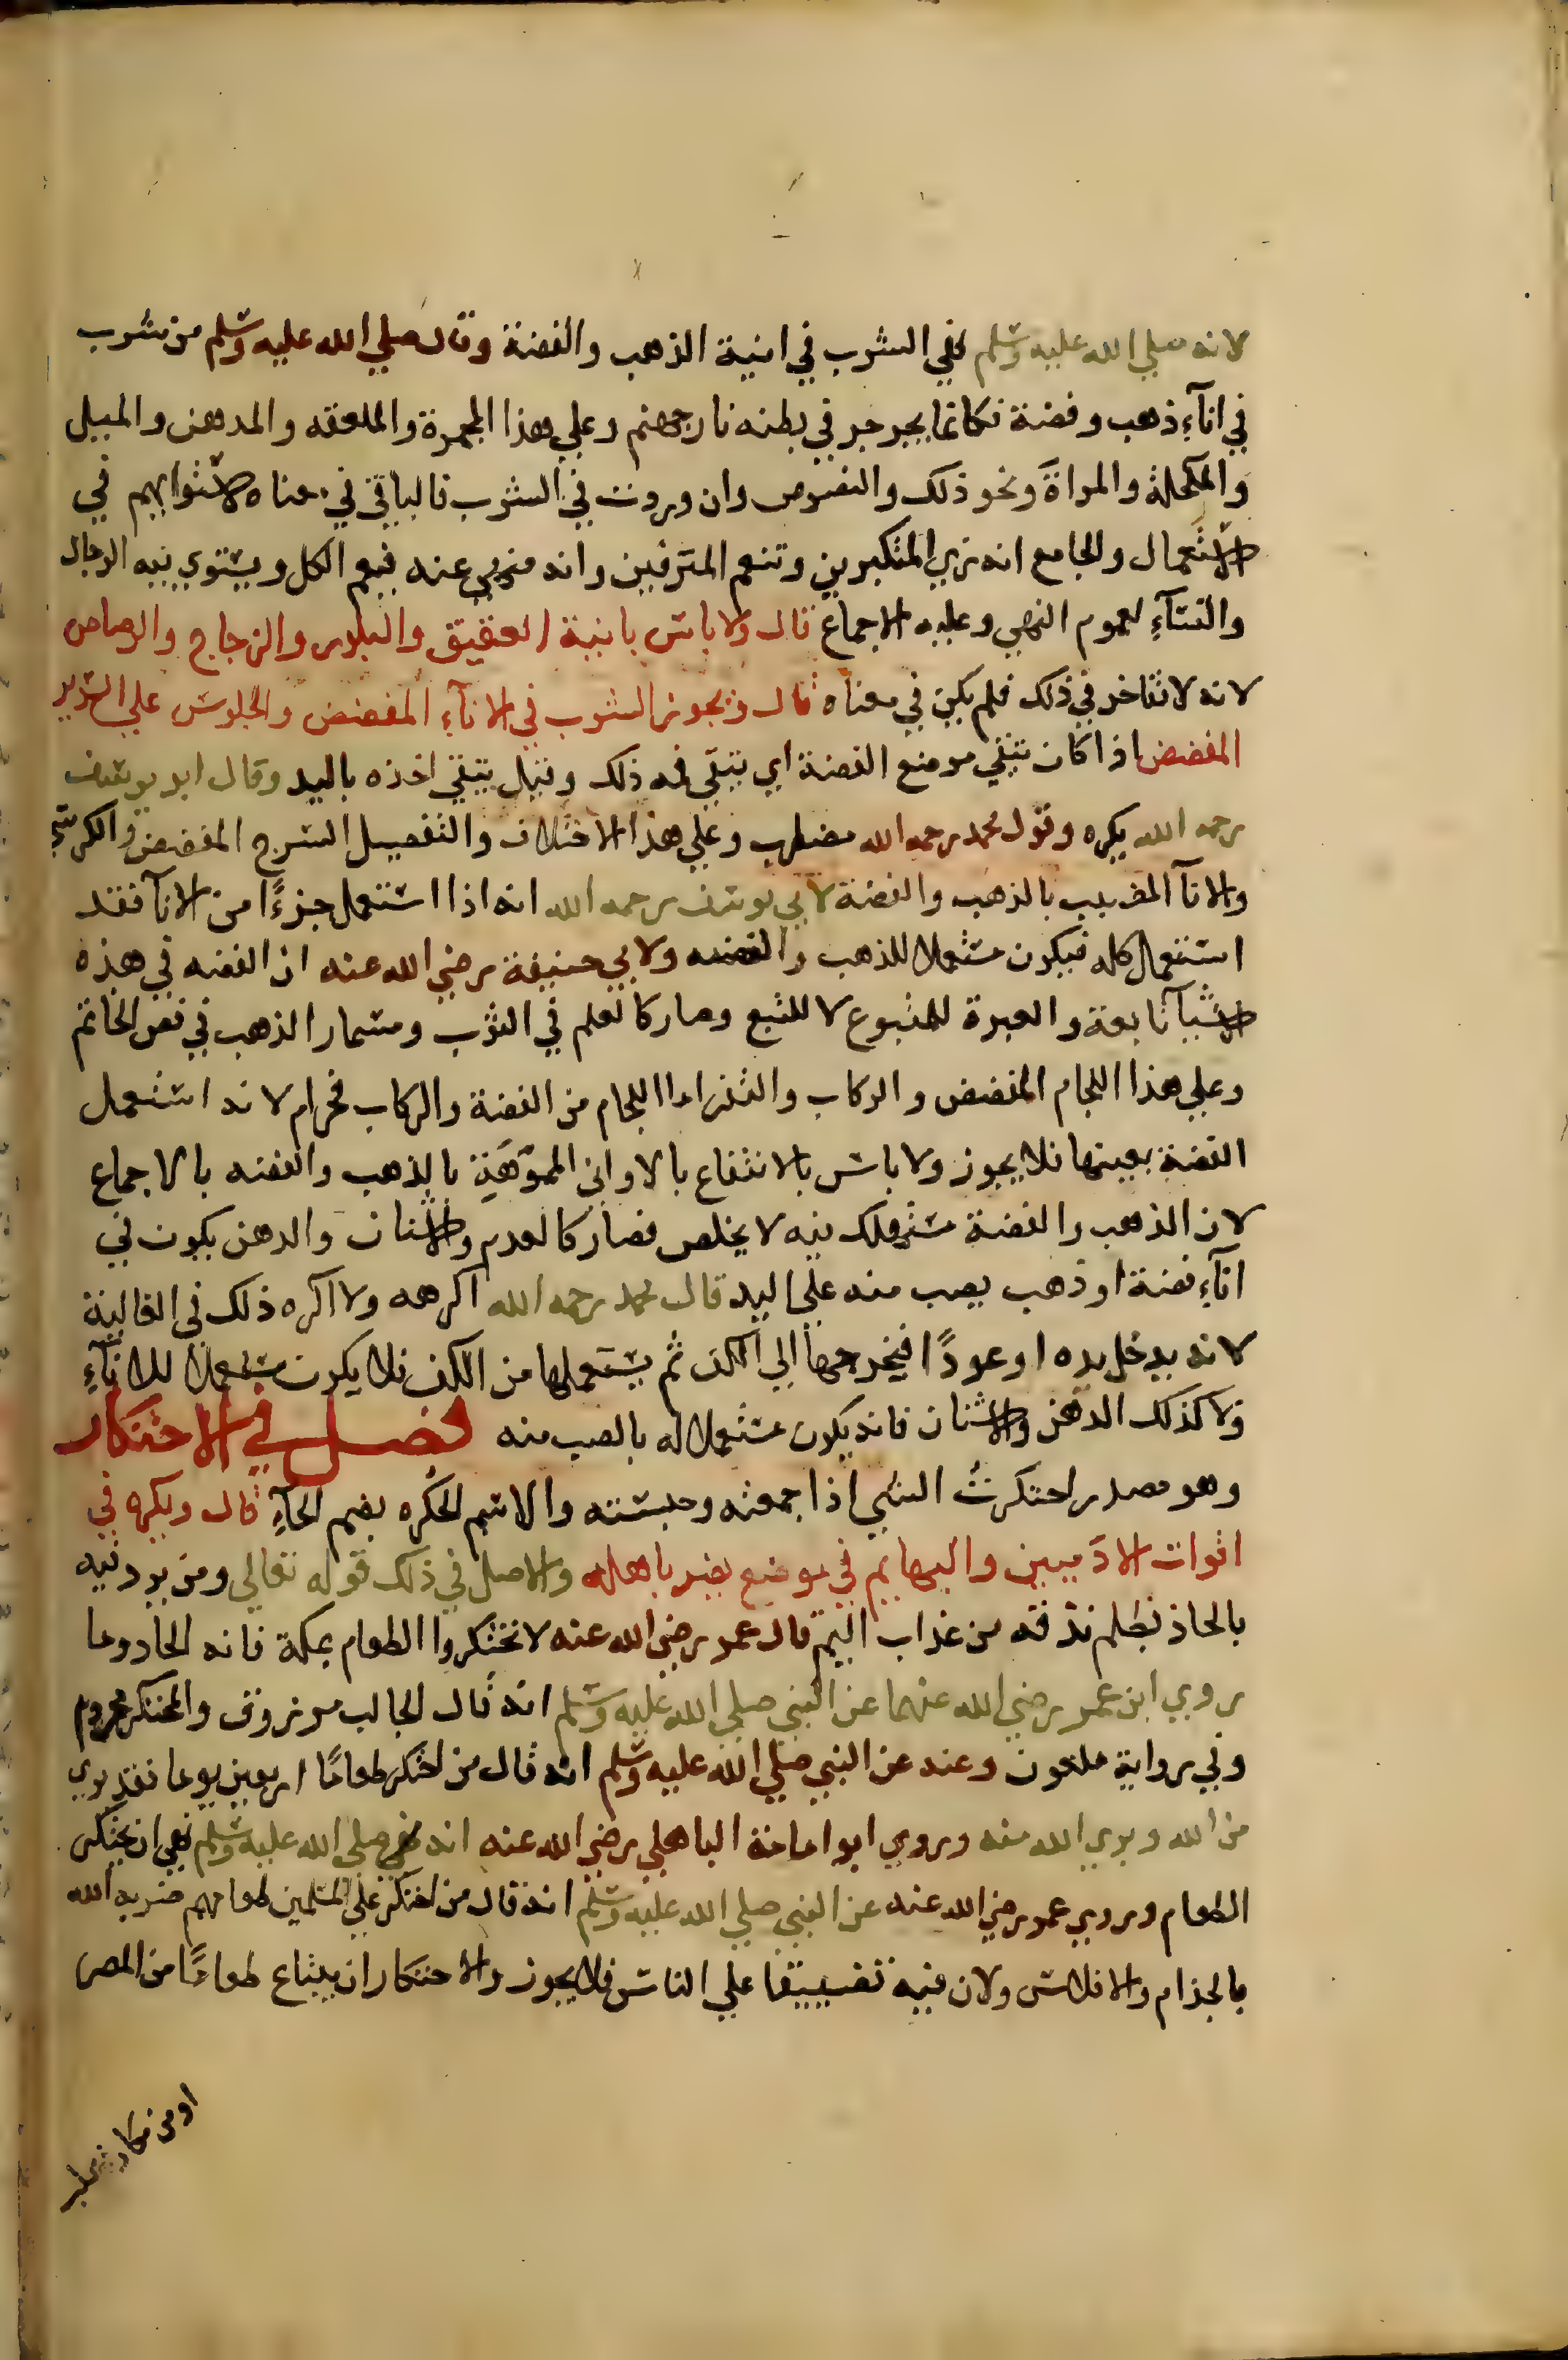 لانه صلي الله عليه وسلم نهي الشرب في انية الذهب والفضة وقال صلي الله عليه وسلم من شرب
في انآءِ ذهب وفضة فكانما يجرجر في بطنه نار جهنم وعلي هذا المجمرة والملعقه والمدهن والميل
والمكحلة والمراةَ ونحو ذلك والنصوص وان وردت في الشرب فالباقي في معناه لاستوايهم في
الاستعمال والجامع انه زي المتكبرين وتنعم المترفين وانه منهي عنه فيعم الكل ويستوي فيه الرجال
والنسآءِ لعموم النهي وعليه الاجماع قال ولا باس بانية العقيق والبلور والزجاج والرصاص
لانه لا تفاخر في ذلك فلم يكن في معناه قال ويجوز الشرب في الانآءِ المفضض والجلوس علي السرير
المفضض اذا كان يتقي موضع الفضة اي يتقي فمه ذلك وقيل يتقي اخذه باليد وقال ابو يوسف
رحمه الله يكره وقول محمد رحمه الله مضطرب وعلي هذا الاختلاف والتفصيل السرج المفضض والكرسي
والانآ المضبب بالذهب والفضة لابي يوسف رحمه الله انه اذا استعمل جزءًا من الانآ فقد
استعمل كله فيكون مستعملا للذهب والفضه ولابي حنيفة رضي الله عنه ان الفضه في هذه
الاشيآ تابعة والعبرة للمتبوع لا للتبع وصار كالعلم في الثوب ومسمار الذهب في فص الخاتم
وعلي هذا اللجام المفضض والركاب والثفر اما اللجام من الفضة والركاب فحرام لانه استعمل
الفضة بعينها فلا يجوز ولا باس بالانتفاع بالاواني المموَّهَةِ بالذهب والفضه بالاجماع
لان الذهب والفضة مستهلك فيه لا يخلص فصار كالعدم والاشنان والدهن يكون في
انآءِ فضة او ذهب يصب منه علي اليد قال محمد رحمه الله اكرهه ولا اكره ذلك في الغالية
لانه يدخل يده او عودًا فيخرجها الي الكف ثم يستعملها من الكف فلا يكون مستعملا للانآءِ
ولا كذلك الدهن والاشنان فانه يكون مستعملا له بالصب منه فصل في الاحتكار
وهو مصدر احتكرتُ الشي اذا جمعته وحبسته والاسم الحُكره بضم الحآءِ قال ويكره في
اقوات الادَميين والبهايم في موضع يضر باهله والاصل في ذلك قوله تعالي ومن يرد فيه
بالحاد بظلم نذقه من عذاب اليم قال عمر رضي الله عنه لا تحتكروا الطعام بمكة فانه الحاد وما
روي ابن عمر رضي الله عنهما عن النبي صلي الله عليه وسلم انه قال الجالب مرزوق والمحتكر محروم
وفي رواية ملعون وعنه عن النبي صلي الله عليه وسلم انه قال من احتكر طعامًا اربعين يوما فقد بري
من الله وبري الله منه وروي ابو امامة الباهلي رضي الله عنه انه صلي الله عليه وسلم نهي ان يحتكر
الطعام وروي عمر رضي الله عنه عن النبي صلي الله عليه وسلم انه قال من احتكر علي المسلمين طعامهم ضربه الله
بالجذام والافلاس ولان فيه تضييقا علي الناس فلا يجوز والاحتكار ان يبتاع طعامًا من المصر
او من مكان